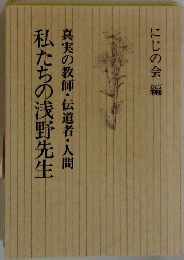 にじの会 編
真実の教師・伝道者・人間
私たちの浅野先生